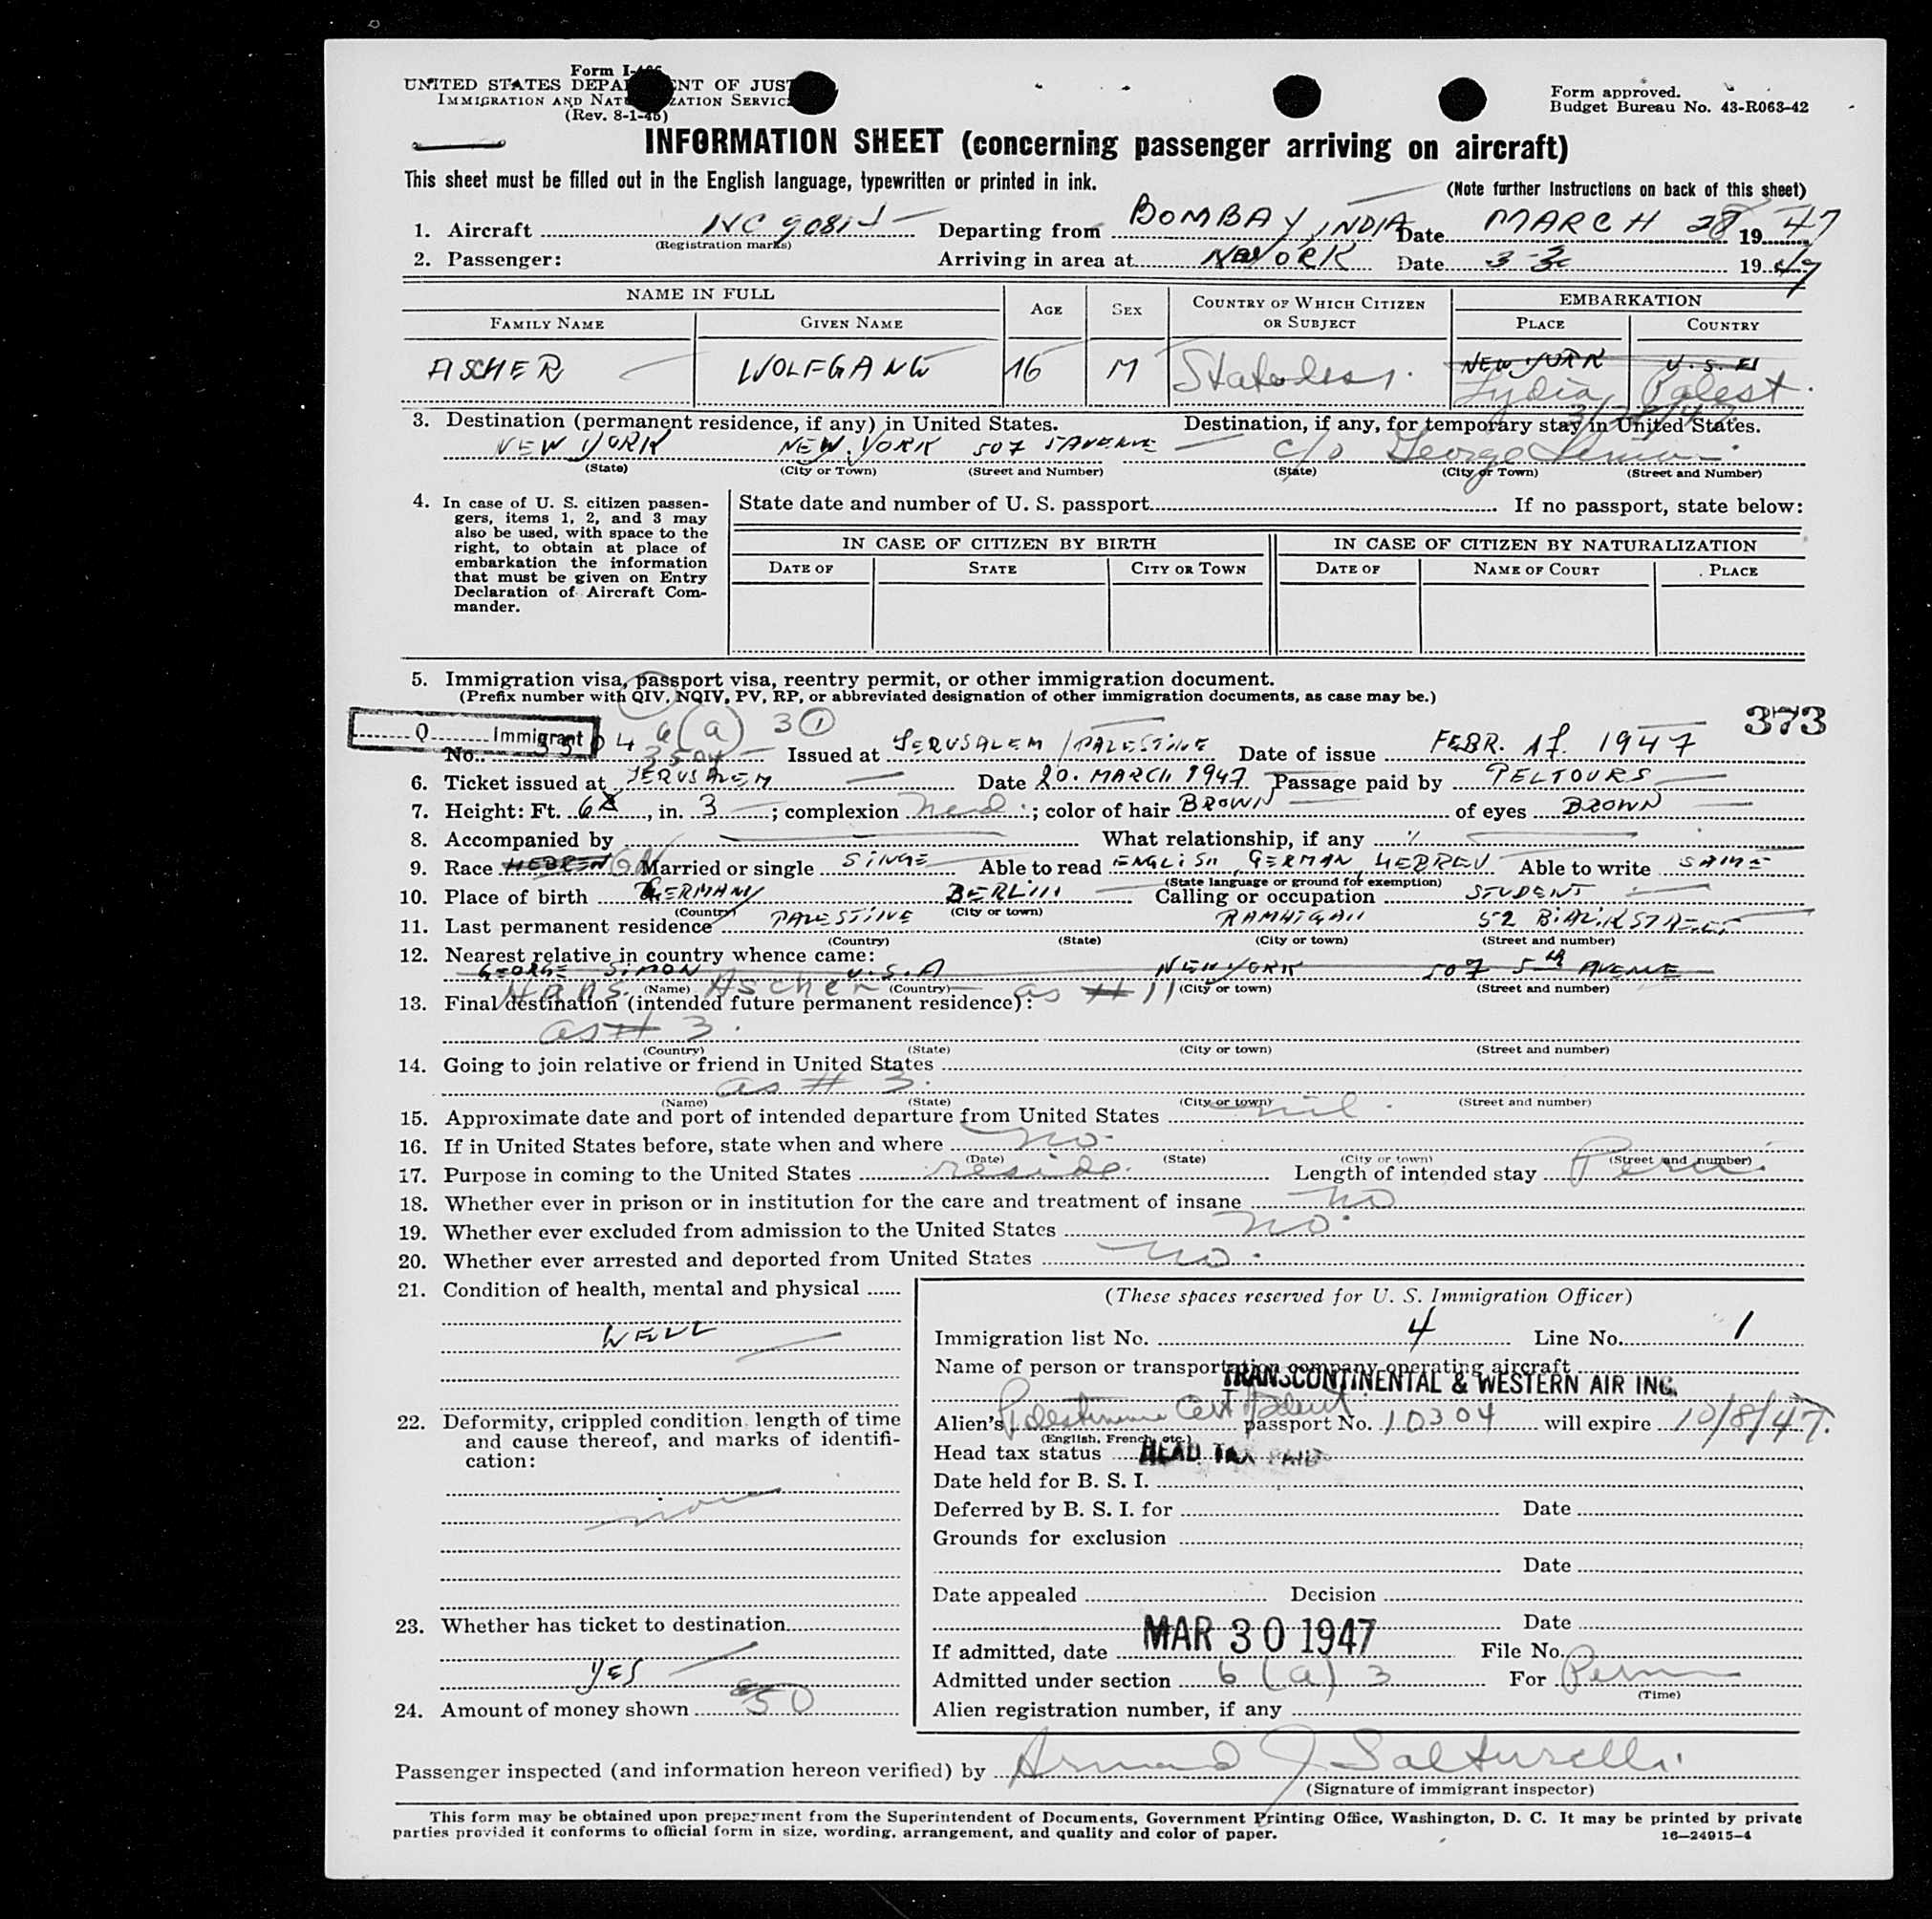 Form I-466
UNITED STATES DEPARTMENT OF JUSTICE
IMMIGRATION AND NATURALIZATION SERVICE
(Rev. 8-1-45)
Form approved.
Budget Bureau No. 43-R063-42
INFORMATION SHEET (concerning passenger arriving on aircraft)
This sheet must be filled out in the English language, typewritten or printed in ink.
(Note further instructions on back of this sheet)
1. Aircraft NC 90814 Departing from BOMBAY, INDIA Date MARCH 28 1947
(Registration marks)
2. Passenger: Arriving in area at NEW YORK Date 3-30 1947
NAME IN FULL AGE SEX COUNTRY OF WHICH CITIZEN OR SUBJECT EMBARKATION
FAMILY NAME GIVEN NAME PLACE COUNTRY
ASCHER WOLFGANG 16 M Stateless. NEW YORK U.S.A
Lydia, Palest.
3. Destination (permanent residence, if any) in United States. Destination, if any, for temporary stay in United States.
NEW YORK NEW YORK 507 5 AVENUE c/o George Simon
(State) (City or Town) (Street and Number) (State) (City or Town) (Street and Number)
4. In case of U. S. citizen passengers, items 1, 2, and 3 may also be used, with space to the right, to obtain at place of embarkation the information that must be given on Entry Declaration of Aircraft Commander.
State date and number of U. S. passport If no passport, state below:
IN CASE OF CITIZEN BY BIRTH IN CASE OF CITIZEN BY NATURALIZATION
DATE OF STATE CITY OR TOWN DATE OF NAME OF COURT PLACE
5. Immigration visa, passport visa, reentry permit, or other immigration document.
(Prefix number with QIV, NQIV, PV, RP, or abbreviated designation of other immigration documents, as case may be.)
373
Q Immigrant 6 (a) 3 1
No. 3504 Issued at JERUSALEM / PALESTINE Date of issue FEBR. 17. 1947
6. Ticket issued at JERUSALEM Date 20. MARCH 1947 Passage paid by PELTOURS
7. Height: Ft. 6, in. 3; complexion med; color of hair BROWN of eyes BROWN
8. Accompanied by What relationship, if any
9. Race HEBREW Married or single SINGE Able to read ENGLISH GERMAN HEBREW Able to write SAME
(State language or ground for exemption)
10. Place of birth GERMANY BERLIN Calling or occupation STUDENT
(Country) (City or town)
11. Last permanent residence PALESTINE RAMATGAN 52 BIALIK STREET
(Country) (State) (City or town) (Street and number)
12. Nearest relative in country whence came:
GEORGE SIMON U.S.A NEW YORK 507 5th AVENUE
(Name) (Country) (City or town) (Street and number)
Hans Ascher as # 11
13. Final destination (intended future permanent residence):
as # 3.
(Country) (State) (City or town) (Street and number)
14. Going to join relative or friend in United States
as # 3.
(Name) (State) (City or town) (Street and number)
15. Approximate date and port of intended departure from United States nil.
16. If in United States before, state when and where no.
(Date) (State) (City or town) (Street and number)
17. Purpose in coming to the United States reside. Length of intended stay Perm.
18. Whether ever in prison or in institution for the care and treatment of insane no
19. Whether ever excluded from admission to the United States no.
20. Whether ever arrested and deported from United States no.
21. Condition of health, mental and physical
WELL
22. Deformity, crippled condition, length of time and cause thereof, and marks of identification:
23. Whether has ticket to destination
YES
24. Amount of money shown 50
(These spaces reserved for U. S. Immigration Officer)
Immigration list No. 4 Line No. 1
Name of person or transportation company operating aircraft
TRANSCONTINENTAL & WESTERN AIR INC.
Alien's Palestinian Cert Ident passport No. 10304 will expire 10/8/47.
(English, French, etc.)
Head tax status HEAD TAX PAID
Date held for B. S. I.
Deferred by B. S. I. for Date
Grounds for exclusion
Date
Date appealed Decision
Date
If admitted, date MAR 30 1947 File No.
Admitted under section 6 (a) 3 For Perm
(Time)
Alien registration number, if any
Passenger inspected (and information hereon verified) by Armand J Salturelli
(Signature of immigrant inspector)
This form may be obtained upon prepayment from the Superintendent of Documents, Government Printing Office, Washington, D. C. It may be printed by private
parties provided it conforms to official form in size, wording, arrangement, and quality and color of paper.
16—24915-4